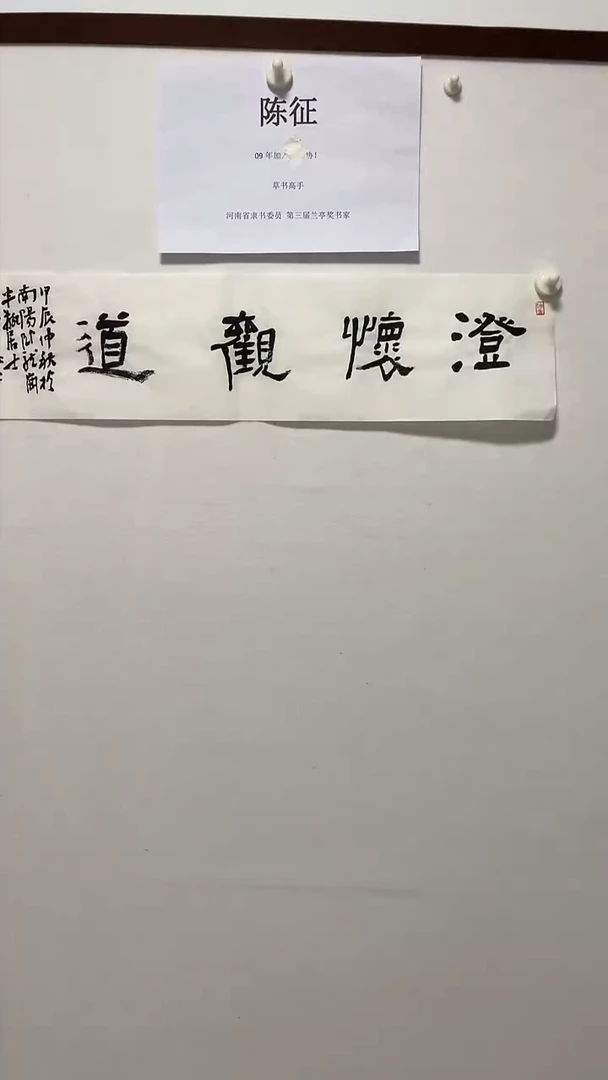 陈征
09 年加 协!
草书高手
河南省隶书委员 第三届兰亭奖书家
澄懷觀道
甲辰仲秋於
南陽卧龍崗
半 居士